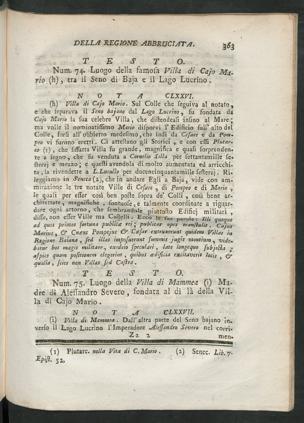 DELLA REGIONE ABBRUCIATA. 363
T E S T O.
Num. 74. Luogo della famosa Villa di Cajo Ma-
rio (h), tra il Seno di Baja e il Lago Lucrino.
N O T A CLXXVI.
(h) Villa di Cajo Mario. Sul Colle che seguiva al notato,
e che separava il Seno bajano dal Lago Lucrino, fu fondata da
Cajo Mario la sua celebre Villa, che distendeasi insino al Mare;
ma volle il nominatissimo Mario disporvi l'Edificio sull'alto del
Colle, forse all'obbietto medesimo, che indi da Cesare e da Pom-
peo vi furono eretti. Ci attestano gli Storici, e con essi Plutar-
co (1), che siffatta Villa fu grande, magnifica e quasi sorprenden-
te a segno, che fu venduta a Cornelio Silla per settantamille se-
sterzj e mezzo; e questi avendola di molto aumentata ed arricchi-
ta, la rivendette a L. Lucullo per docencinquantamille sesterzj. Ri-
leggiamo in Seneca (2), che in andare Egli a Baja, vide con am-
mirazione le tre notate Ville di Cesare, di Pompeo e di Mario,
le quali per esser così ben poste sopra de' Colli, così bene ar-
chitettate, magnifiche, suntuose, e talmente coordinate a riguar-
dare ogni attorno, che sembrandole piuttosto Edificj militari,
disse, non esser Ville ma Castelli.
ad quos primos fortuna publicas opes transtulit, Cajus
Marius, & Cnæus Pompejus & Cæsar extruxerunt quidem Villas in
Regione Bajana, sed illas imposuerunt summis jugis montium, vide-
batur hoc magis militare, ex edito speculari, late longeque subjecta;
aspice quam positionem elegerint, quibus ædificia excitaverit locis, &
qualia, scies non Villas sed Castra.
T E S T O.
Num. 75. Luogo della Villa di Mammea (i) Ma-
dre di Alessandro Severo, fondata al di là della Vil-
la di Cajo Mario.
N O T A CLXXVII.
(i) Villa di Mammea. Dall'altra parte del Seno bajano in-
verso il Lago Lucrino l'Imperadore Alessandro Severo nel corri-
Zz 2 men-
(1) Plutarc. nella Vita di C. Mario. (2) Senec. Lib. 7.
Epist. 52.